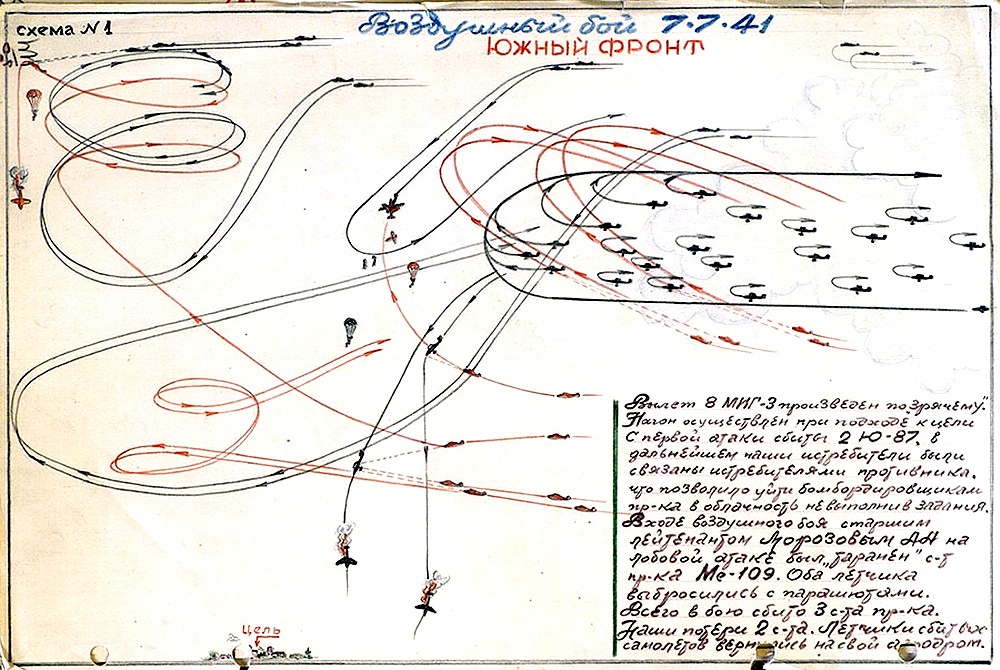 схема №1
Воздушный бой 7·7·41
Южный фронт
Вылет 8 МИГ-3 произведен по„Зрячему".
Нагон осуществлен при подходе к цели
С первой атаки сбиты 2 Ю-87. в
дальнейшем наши истребители были
связаны истребителями противника,
что позволило уйти бомбардировщикам
пр-ка в облачность невыполнив задания.
Входе воздушного боя старшим
лейтенантом Морозовым АА на
лобовой атаке был „таранен" с-т
пр-ка Ме-109. Оба летчика
выбросились с парашютами.
Всего в бою сбито 3 с-та пр-ка.
Наши потери 2 с-та. Летчики сбитых
самолетов вернулись на свой аэродром.
Цель